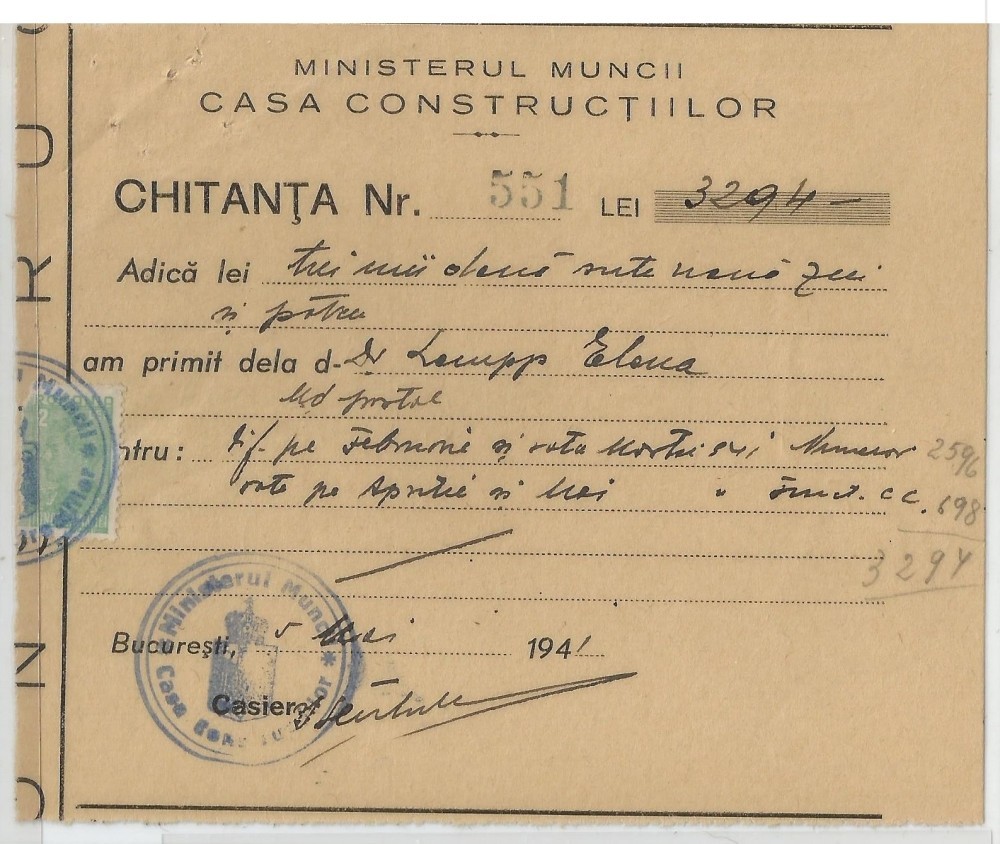 MINISTERUL MUNCII
CASA CONSTRUCȚIILOR
CHITANȚA Nr. 551 LEI 3294 —
Adică lei trei mii două sute nouă zeci
și patru
am primit dela d- Dr Lempp Elena
pentru: dif. pe Februarie și rata Martie 941 Numerar 2596
rate pe Aprilie și Mai " C C. 698
3294
București, 5 Mai 1941
Casier,
Ministerul Muncii
Casa Construcțiilor
Muncii